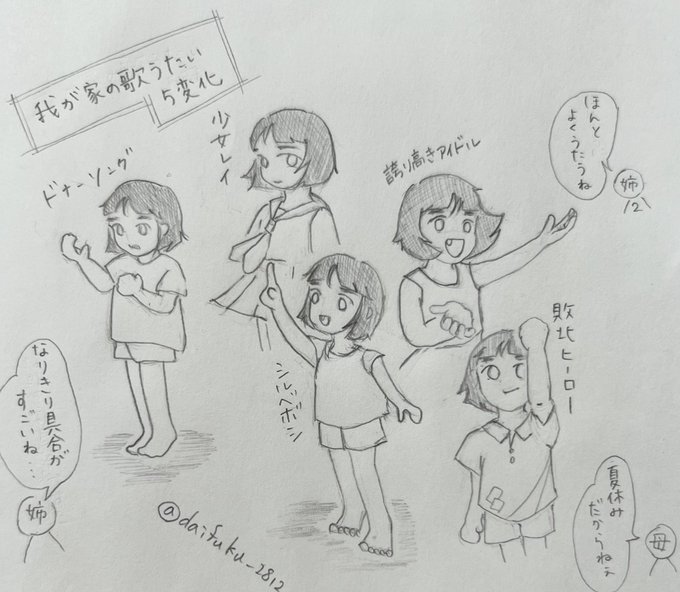 我が家の歌うたい
5変化
ドナーソング
少女レイ
誇り高きアイドル
ほんと
よくうたうね
姉
12
シルベボシ
敗北ヒーロー
なりきり具合が
すごいね…
姉
夏休み
だからねぇ
母
@daifuku_2812